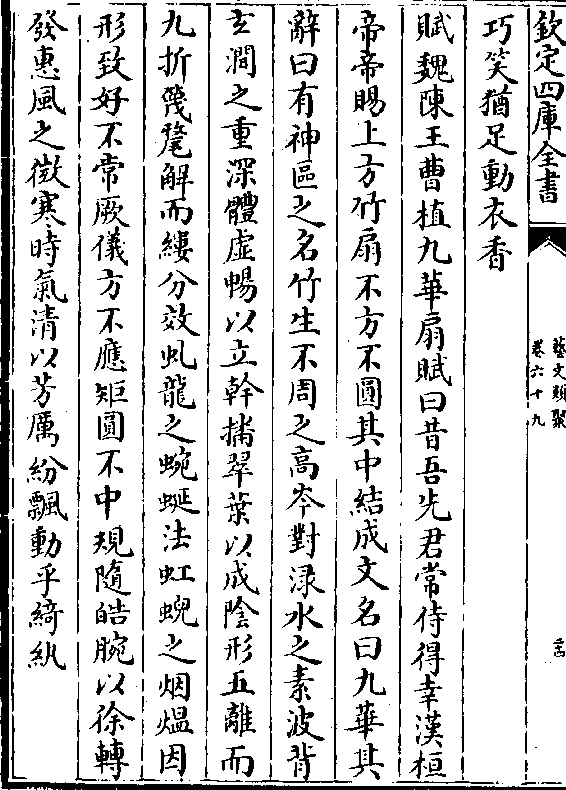 欽定四庫全書
藝文類聚
卷六十九
巧笑猶足動衣香
賦魏陳王曹植九華扇賦曰昔吾先君常侍得幸漢桓
帝帝賜上方竹扇不方不圓其中結成文名曰九華其
辭曰有神區之名竹生不周之高岑對淥水之素波背
玄澗之重深體虛暢以立幹播翠葉以成陰形五離而
九折篾氂解而縷分效虬龍之蜿蜒法虹蜺之烟熅因
形致好不常厥儀方不應矩圓不中規隨皓腕以徐轉
發惠風之微寒時氣清以芳厲紛飄動乎綺紈